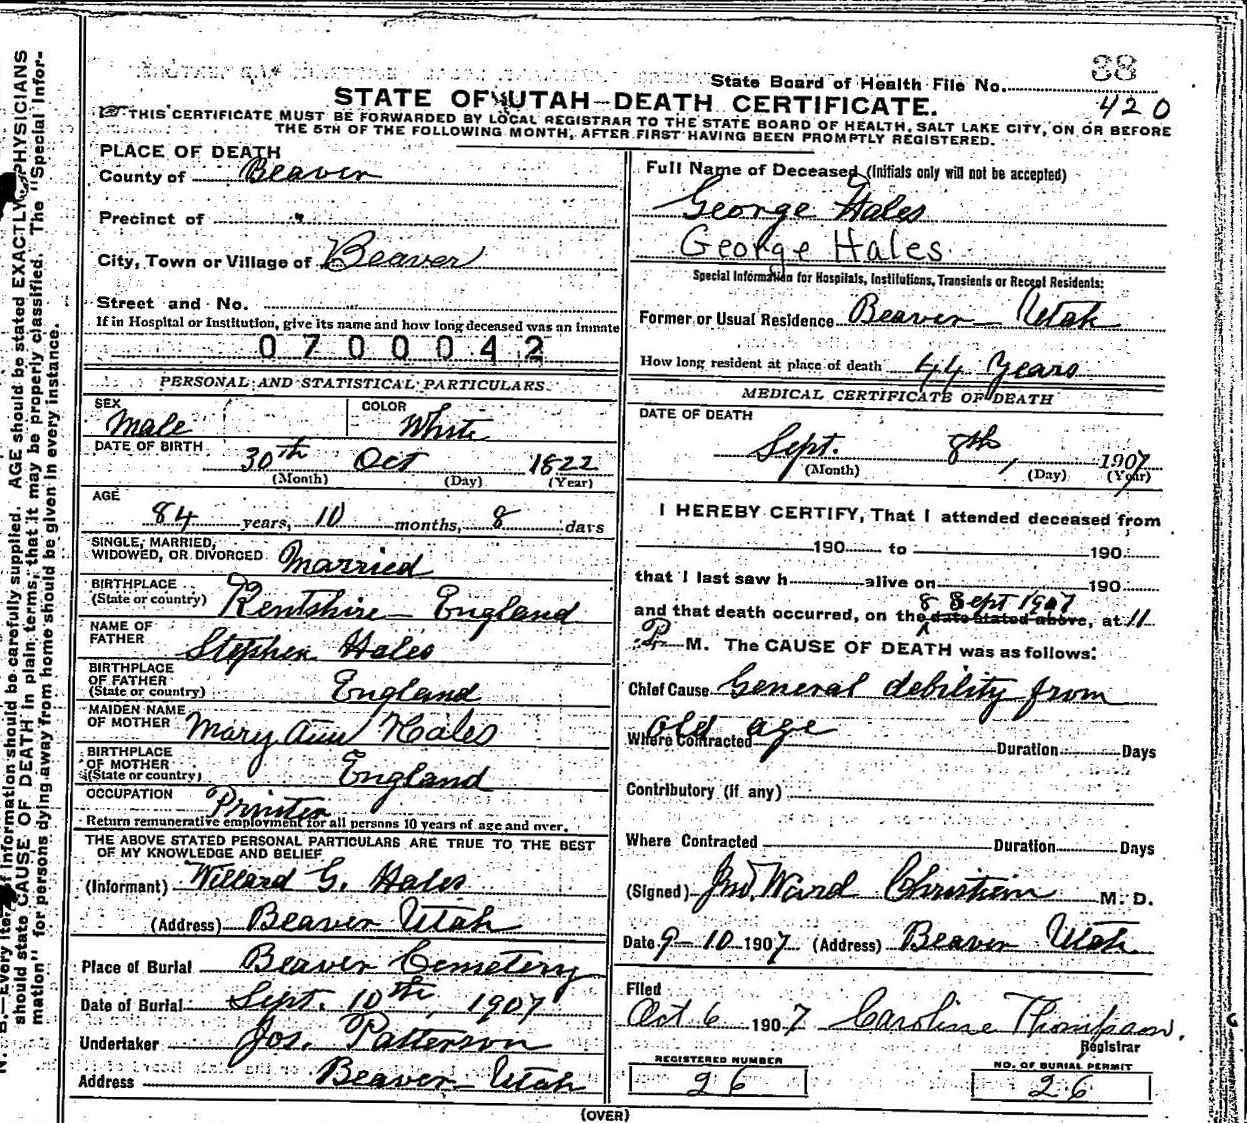 38
State Board of Health File No.
420
STATE OF UTAH—DEATH CERTIFICATE.
THIS CERTIFICATE MUST BE FORWARDED BY LOCAL REGISTRAR TO THE STATE BOARD OF HEALTH, SALT LAKE CITY, ON OR BEFORE
THE 5TH OF THE FOLLOWING MONTH, AFTER FIRST HAVING BEEN PROMPTLY REGISTERED.
PLACE OF DEATH
County of Beaver
Precinct of "
City, Town or Village of Beaver
Street and No.
If in Hospital or Institution, give its name and how long deceased was an inmate
0700042
PERSONAL AND STATISTICAL PARTICULARS.
SEX Male COLOR White
DATE OF BIRTH
30th Oct 1822
(Month) (Day) (Year)
AGE
84 years, 10 months, 8 days
SINGLE, MARRIED,
WIDOWED, OR DIVORCED Married
BIRTHPLACE
(State or country) Kentshire — England
NAME OF
FATHER Stephen Hales
BIRTHPLACE
OF FATHER
(State or country) England
MAIDEN NAME
OF MOTHER Mary Ann Hales
BIRTHPLACE
OF MOTHER
(State or country) England
OCCUPATION Printer
Return remunerative employment for all persons 10 years of age and over.
THE ABOVE STATED PERSONAL PARTICULARS ARE TRUE TO THE BEST
OF MY KNOWLEDGE AND BELIEF
(Informant) Willard G. Hales
(Address) Beaver Utah
Place of Burial Beaver Cemetery
Date of Burial Sept. 10th, 1907
Undertaker Jos. Patterson
Address Beaver — Utah
Full Name of Deceased (Initials only will not be accepted)
George Hales
George Hales
Special Information for Hospitals, Institutions, Transients or Recent Residents:
Former or Usual Residence Beaver — Utah
How long resident at place of death 44 Years
MEDICAL CERTIFICATE OF DEATH
DATE OF DEATH
Sept. 8th, 1907
(Month) (Day) (Year)
I HEREBY CERTIFY, That I attended deceased from
190 to 190
that I last saw h alive on 190
8 Sept 1907
and that death occurred, on the date stated above, at 11
P. M. The CAUSE OF DEATH was as follows:
Chief Cause General debility from
old age
Where Contracted Duration Days
Contributory (if any)
Where Contracted Duration Days
(Signed) Jno. Ward Christian M. D.
Date 9-10 1907 (Address) Beaver Utah
Filed
Oct 6 1907 Caroline Thompson.
Registrar
REGISTERED NUMBER
26
NO. OF BURIAL PERMIT
26
(OVER)
N. B.—Every item of information should be carefully supplied. AGE should be stated EXACTLY. PHYSICIANS
should state CAUSE OF DEATH in plain terms, that it may be properly classified. The "Special Infor-
mation" for persons dying away from home should be given in every instance.